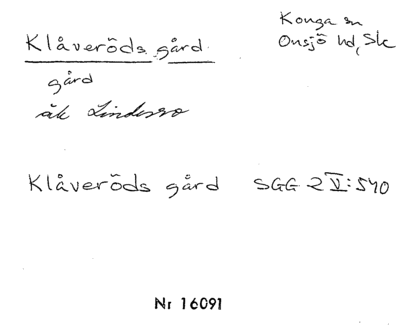 Klåveröds gård
Konga sn
Onsjö hd, Sk
gård
äk Lindesro
Klåveröds gård SGG 2 V:540
Nr 16091